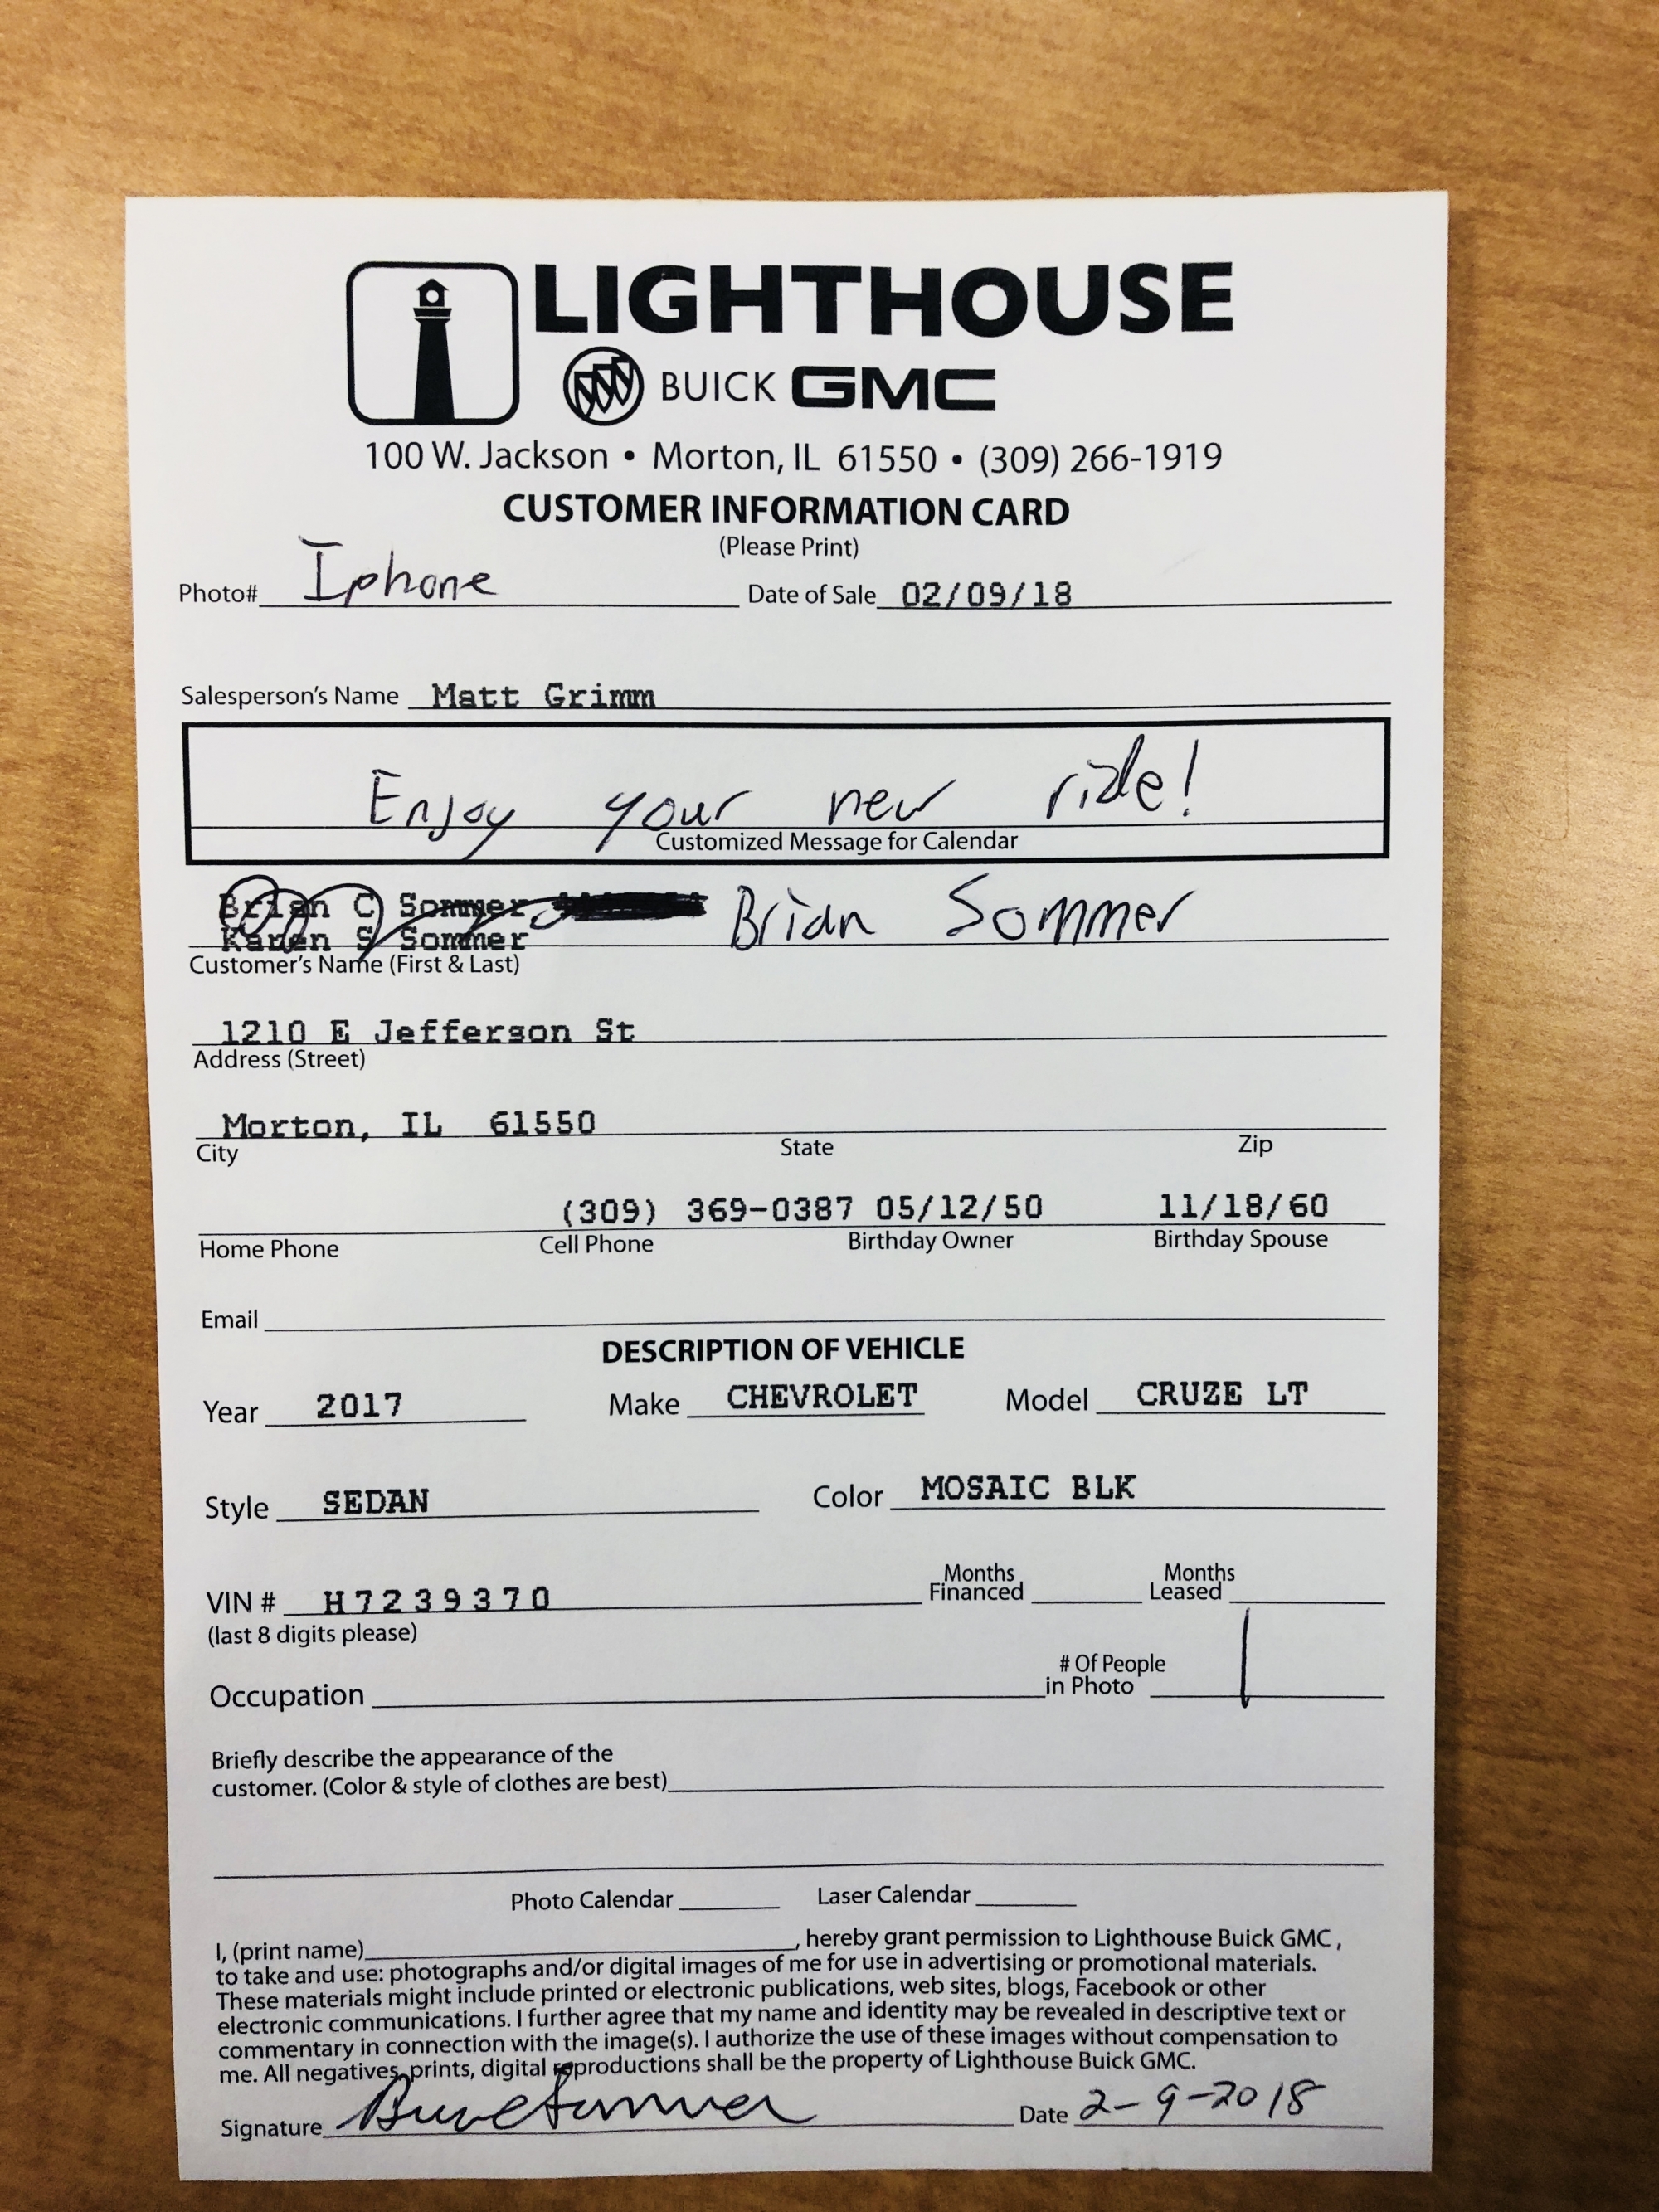 LIGHTHOUSE
BUICK GMC
100 W. Jackson • Morton, IL 61550 • (309) 266-1919
CUSTOMER INFORMATION CARD
(Please Print)
Photo# Iphone Date of Sale 02/09/18
Salesperson's Name Matt Grimm
Enjoy your new ride!
Customized Message for Calendar
Brian C Sommer Brian Sommer
Karen S Sommer
Customer's Name (First & Last)
1210 E Jefferson St
Address (Street)
Morton, IL 61550
City State Zip
(309) 369-0387 05/12/50 11/18/60
Home Phone Cell Phone Birthday Owner Birthday Spouse
Email
DESCRIPTION OF VEHICLE
Year 2017 Make CHEVROLET Model CRUZE LT
Style SEDAN Color MOSAIC BLK
VIN # H7239370 Months Financed Months Leased
(last 8 digits please)
Occupation # Of People in Photo 1
Briefly describe the appearance of the
customer. (Color & style of clothes are best)
Photo Calendar Laser Calendar
I, (print name) , hereby grant permission to Lighthouse Buick GMC,
to take and use: photographs and/or digital images of me for use in advertising or promotional materials.
These materials might include printed or electronic publications, web sites, blogs, Facebook or other
electronic communications. I further agree that my name and identity may be revealed in descriptive text or
commentary in connection with the image(s). I authorize the use of these images without compensation to
me. All negatives, prints, digital reproductions shall be the property of Lighthouse Buick GMC.
Signature Date 2-9-2018